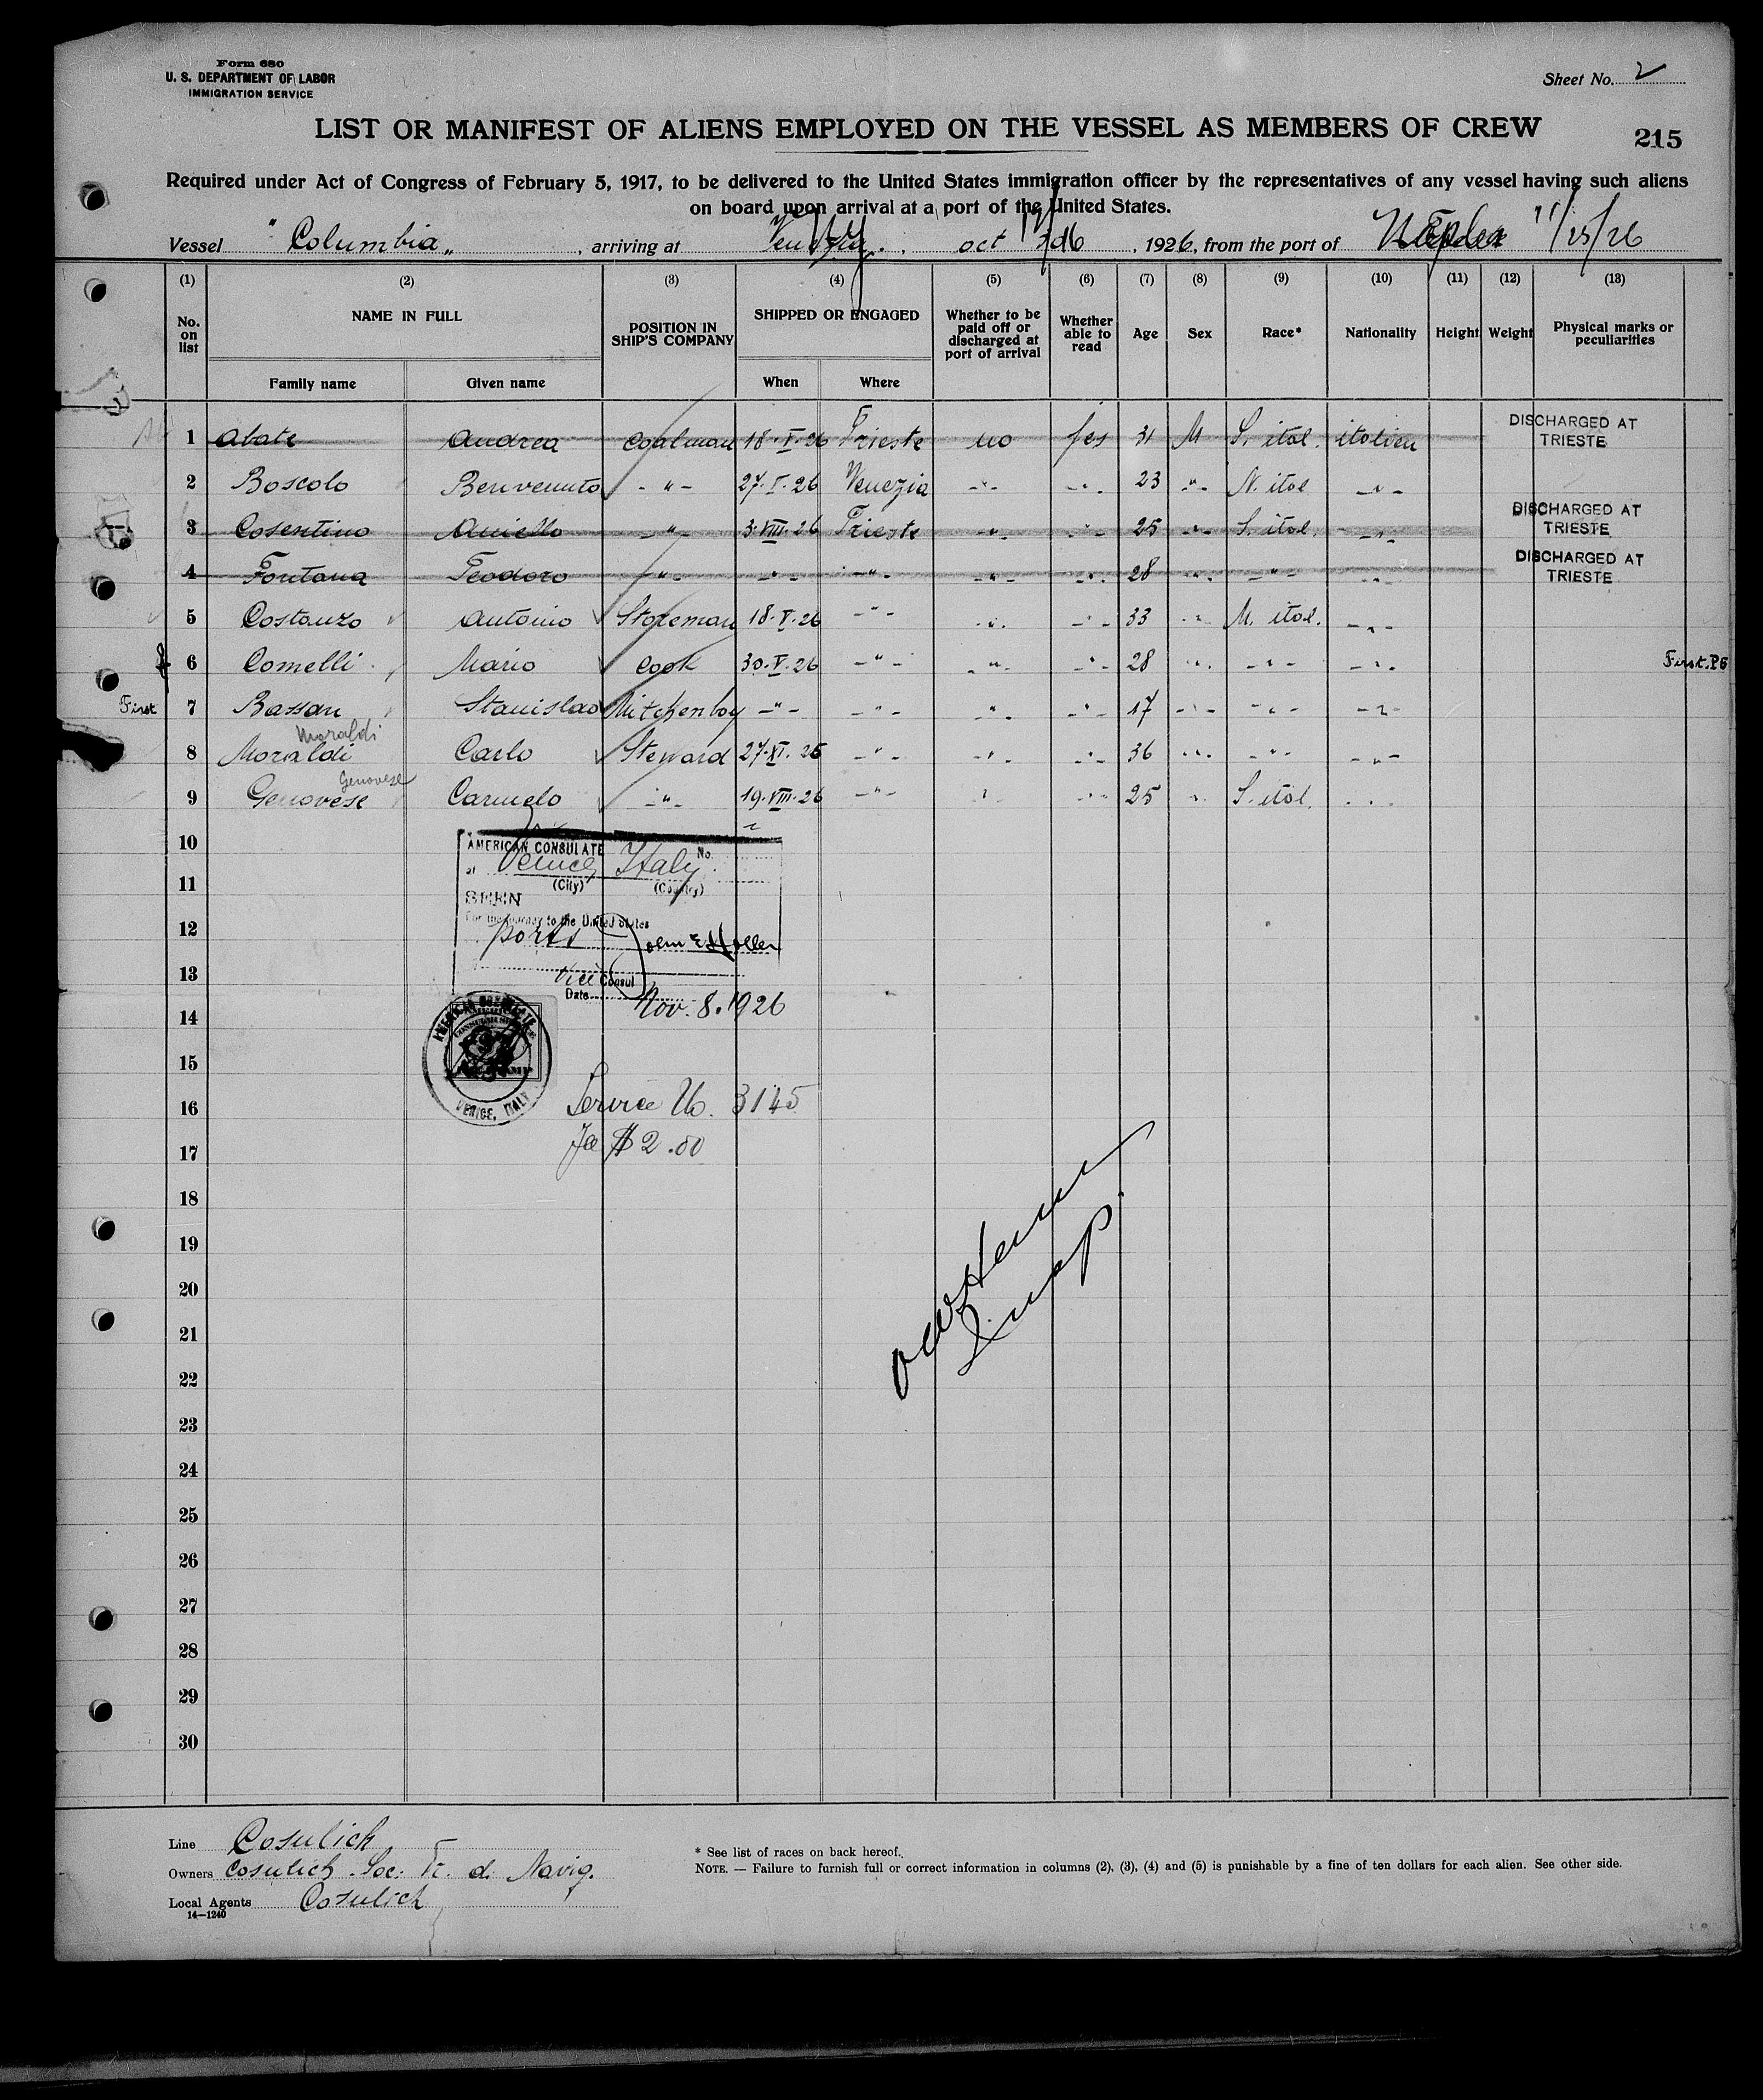 Form 680
U. S. DEPARTMENT OF LABOR
IMMIGRATION SERVICE
Sheet No. 2
LIST OR MANIFEST OF ALIENS EMPLOYED ON THE VESSEL AS MEMBERS OF CREW
215
Required under Act of Congress of February 5, 1917, to be delivered to the United States immigration officer by the representatives of any vessel having such aliens
on board upon arrival at a port of the United States.
Vessel "Columbia", arriving at Venezia, oct, 1926, from the port of 11/25/26
(1) (2) (3) (4) (5) (6) (7) (8) (9) (10) (11) (12) (13)
No. on list NAME IN FULL POSITION IN SHIP'S COMPANY SHIPPED OR ENGAGED Whether to be paid off or discharged at port of arrival Whether able to read Age Sex Race* Nationality Height Weight Physical marks or peculiarities
Family name Given name When Where
1 Abate Andrea Coalman 18·V·26 Trieste no yes 31 M S. ital. italien DISCHARGED AT TRIESTE
2 Boscolo Benvenuto -"- 27·I·26 Venezia -"- -"- 23 -"- N. ital -"-
3 Cosentino Aniello -"- 3·VIII·26 Trieste -"- -"- 25 -"- S. ital. -"- DISCHARGED AT TRIESTE
4 Fontana Teodoro -"- -"- -"- -"- -"- 28 -"- -"- -"- DISCHARGED AT TRIESTE
5 Costanzo Antonio Storeman 18·V·26 -"- -"- -"- 33 -"- N. ital. -"-
6 Comelli Mario Cook 30·V·26 -"- -"- -"- 28 -"- -"- -"- First. P6
First 7 Bassan Stanislao Kitchenboy -"- -"- -"- -"- 17 -"- -"- -"-
Moraldi
8 Moraldi Carlo Steward 27·XI·25 -"- -"- -"- 36 -"- -"- -"-
Genovese
9 Genovese Carmelo -"- 19·VIII·26 -"- -"- -"- 25 -"- S. ital. -"-
10
AMERICAN CONSULATE
at Venice, Italy. No.
(City) (Country)
11
SEEN
For the journey to the United States
12
ports John E Holler
13
Vice Consul
Date Nov. 8. 1926
14
AMERICAN CONSULATE
VENICE, ITALY
15
16
Service No. 3145
17
Fee $2.00
18
19
20
21
Insp.
22
23
24
25
26
27
28
29
30
Line Cosulich
Owners Cosulich Soc. Tr. d. Navig.
Local Agents Cosulich
14—1240
* See list of races on back hereof.
NOTE. — Failure to furnish full or correct information in columns (2), (3), (4) and (5) is punishable by a fine of ten dollars for each alien. See other side.